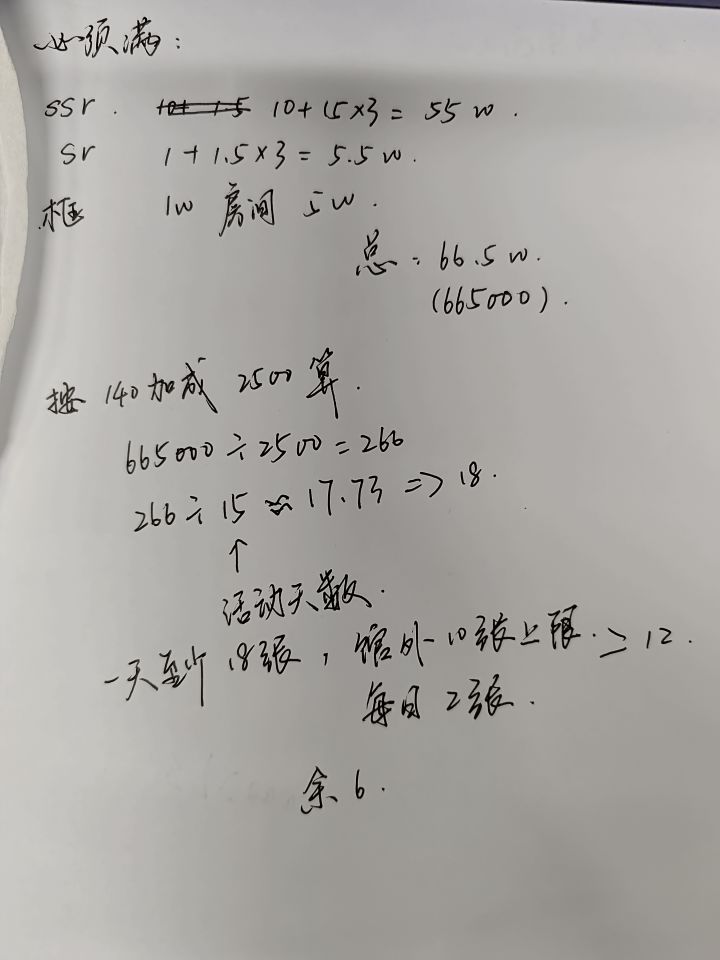 必须满：
ssr. 10+15×3=55w.
sr 1+1.5×3=5.5w.
框 1w 房间 5w.
总：66.5w.
(665000).
按 140加成 2500算.
665000÷2500=266
266÷15≈17.73=>18.
↑
活动天数.
一天至少18张，馆外10张上限.≥12.
每日2张.
余6.